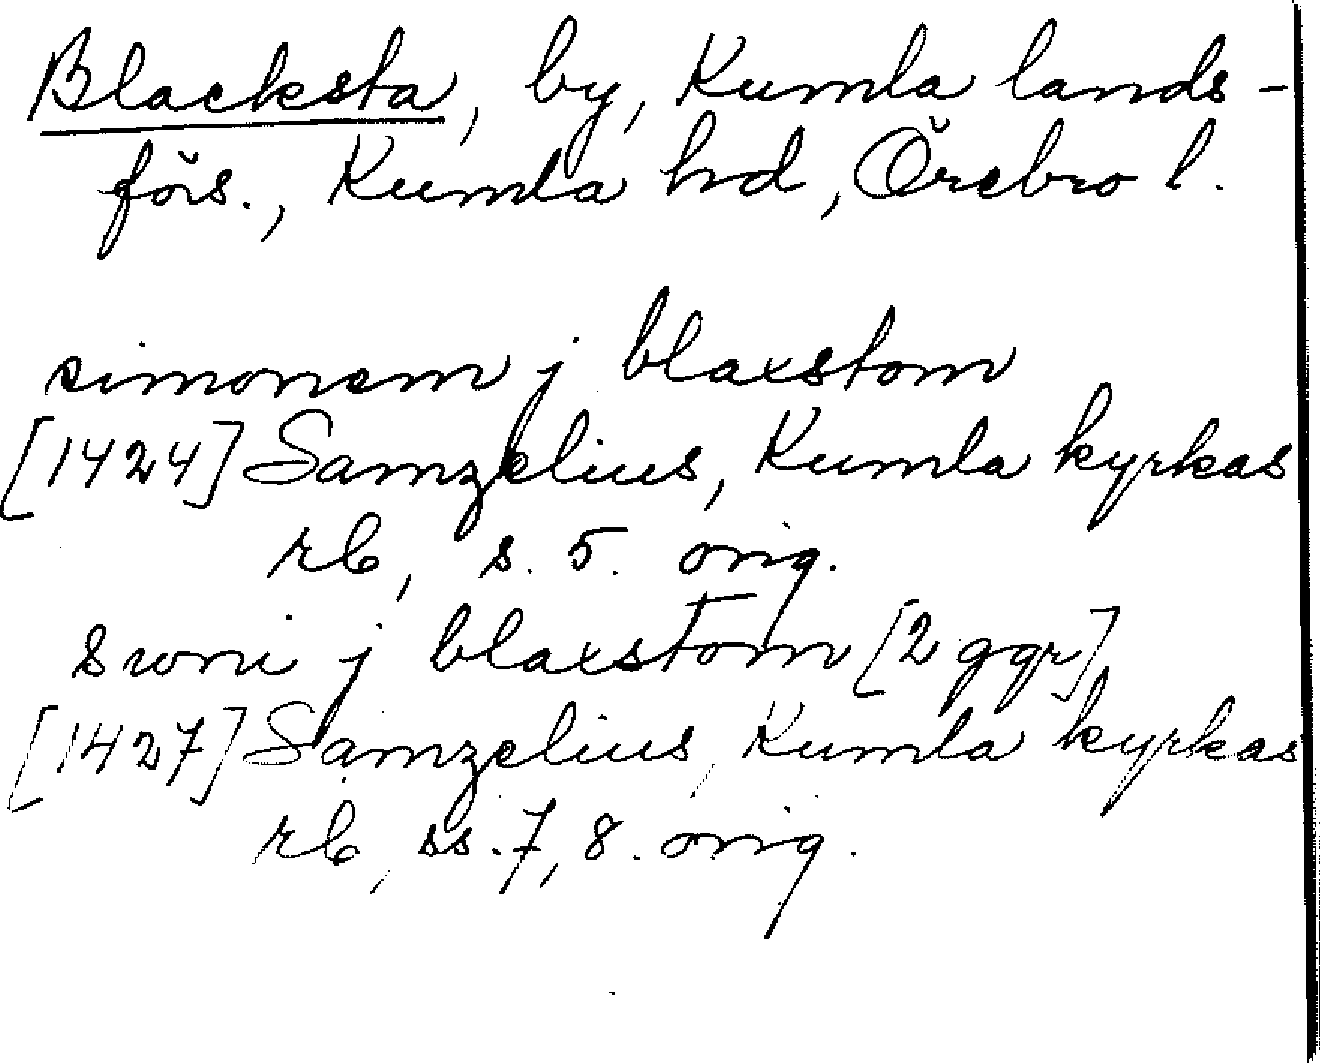 Blacksta, by, Kumla lands-
förs., Kumla hd, Örebro l.
simonem j blaxstom
[1424] Samzelius, Kumla kyrkas
rb, s. 5. orig.
swni j blaxstom [2 ggr]
[1427] Samzelius, Kumla kyrkas
rb, ss. 7, 8. orig.